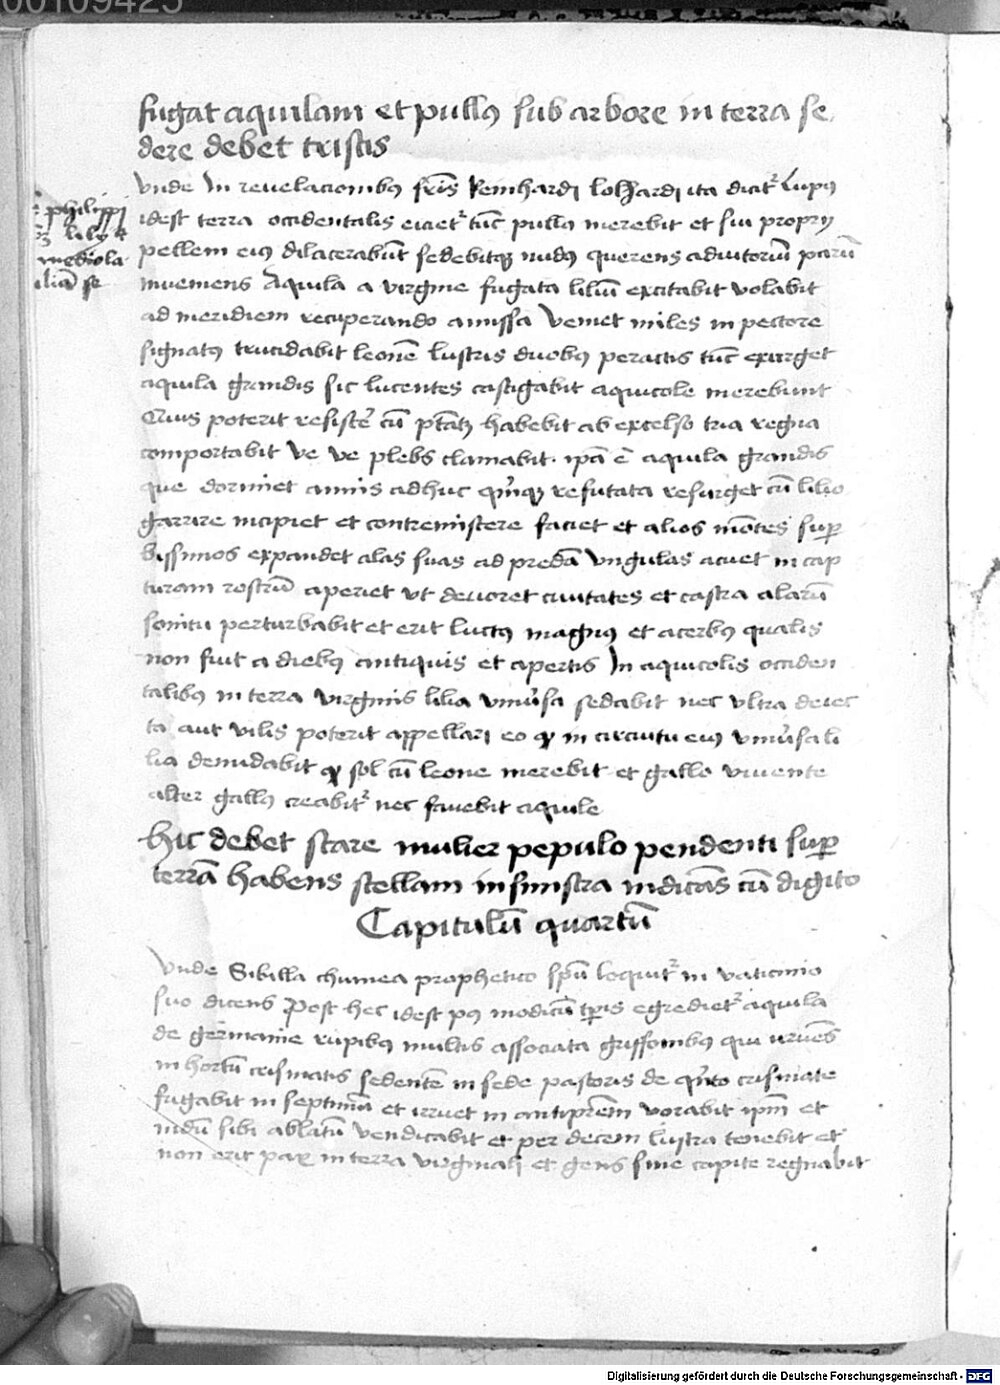 00109425
fugat aquilam et pullus sub arbore in terra se
dere debet tristis
Unde In revelacionibus fris Reinhardi lolhardi ita dicit Lupus
idest terra occidentalis eiciet tunc pullus merebit et sui proprii
pellem eius dilacerabunt sedebitque nudus querens adiutorium parum
inveniens Aquila a virgine fugata lilium excitabit volabit
ad meridiem recuperando amissa Veniet miles in pectore
signatus trucidabit leonem lustris duobus peractis tunc exurget
aquila grandis sic lucentes castigabit aquicole merebunt
Cuius poterit resistere cum ptatem habebit ab excelso tria regna
comportabit ve ve plebs clamabit ipa e aquila grandis
que dormiet annis adhuc quinque refutata resurget cum lilio
garrire incipiet et contremiscere faciet et alios montes super
bissimos expandet alas suas ad predam ungulas acuet in cap
turam rostrum aperiet ut devoret civitates et castra alarum
sonitu perturbabit et erit luctus magnus et acerbus qualis
non fuit a diebus antiquis et apertis In aquicolis occiden
talibus in terra virginis lilia universa sedabit nec ultra deiec
ta aut vilis poterit appellari eo quod in circuitu eius universa li
lia denudabit quod sol cum leone merebit et gallo vivente
alter gallus creabitur nec favebit aquile
hic debet stare mulier pepulo pendenti super
terram habens stellam in sinistra indicans cum digito
Capitulum quartum
Unde Sibilla chumea prophetico spu loquitur in vaticinio
suo dicens Post hec idest post modicum tempris egredietur aquila
de germanie rupibus multis associata griffonibus qui irruens
in hortum crismatis sedentem in sede pastoris de quinto crismate
fugabit in septimum et irruet in antipresm vorabit ipm et
nidum sibi ablatum vendicabit et per decem lustra tenebit et
non erit pax in terra virginali et gens sine capite regnabit
philippi
lily
mediola
Digitalisierung gefördert durch die Deutsche Forschungsgemeinschaft - DFG